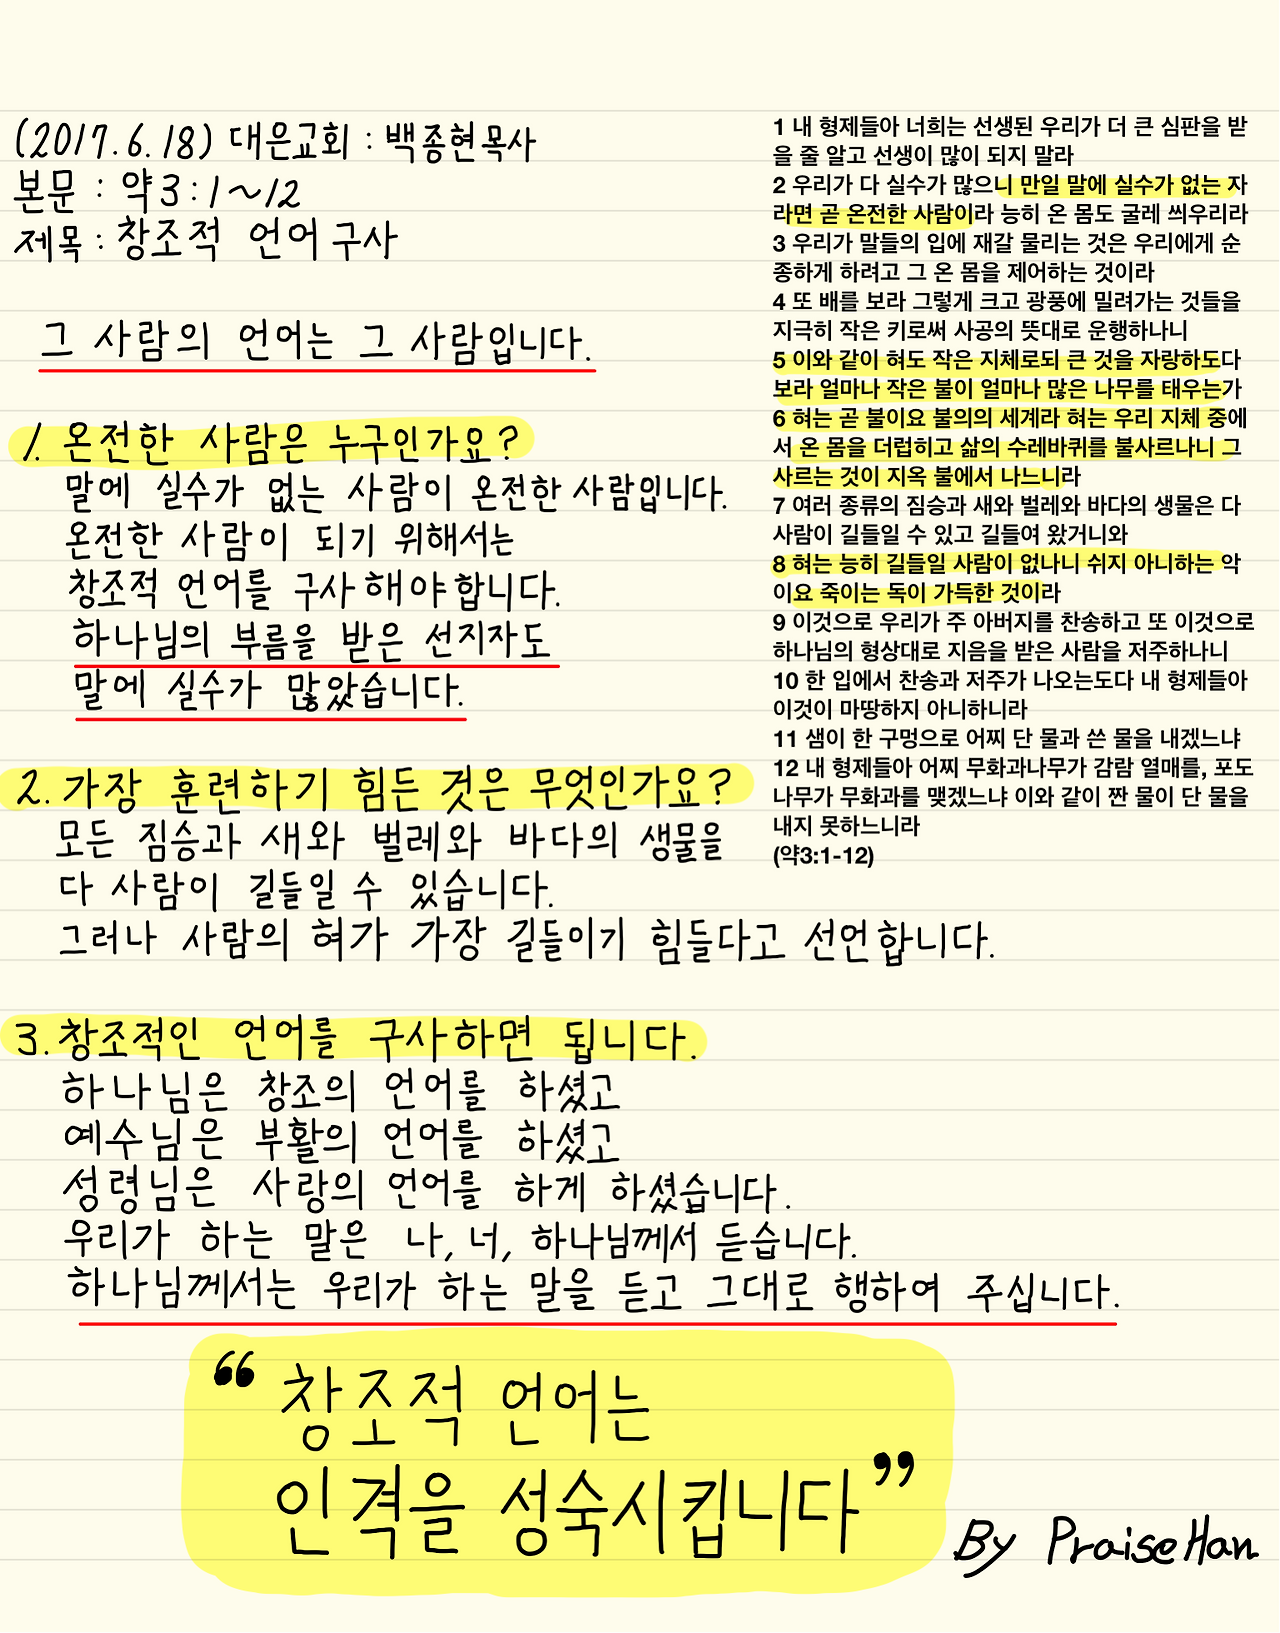 (2017.6.18) 대은교회 : 백종현목사
본문 : 약3:1~12
제목 : 창조적 언어 구사
그 사람의 언어는 그 사람입니다.
1. 온전한 사람은 누구인가요?
말에 실수가 없는 사람이 온전한 사람입니다.
온전한 사람이 되기 위해서는
창조적 언어를 구사해야합니다.
하나님의 부름을 받은 선지자도
말에 실수가 많았습니다.
2. 가장 훈련하기 힘든 것은 무엇인가요?
모든 짐승과 새와 벌레와 바다의 생물을
다 사람이 길들일 수 있습니다.
그러나 사람의 혀가 가장 길들이기 힘들다고 선언합니다.
3. 창조적인 언어를 구사하면 됩니다.
하나님은 창조의 언어를 하셨고
예수님은 부활의 언어를 하셨고
성령님은 사랑의 언어를 하게 하셨습니다.
우리가 하는 말은 나, 너, 하나님께서 듣습니다.
하나님께서는 우리가 하는 말을 듣고 그대로 행하여 주십니다.
“창조적 언어는
인격을 성숙시킵니다”
By PraiseHan
1 내 형제들아 너희는 선생된 우리가 더 큰 심판을 받
을 줄 알고 선생이 많이 되지 말라
2 우리가 다 실수가 많으니 만일 말에 실수가 없는 자
라면 곧 온전한 사람이라 능히 온 몸도 굴레 씌우리라
3 우리가 말들의 입에 재갈 물리는 것은 우리에게 순
종하게 하려고 그 온 몸을 제어하는 것이라
4 또 배를 보라 그렇게 크고 광풍에 밀려가는 것들을
지극히 작은 키로써 사공의 뜻대로 운행하나니
5 이와 같이 혀도 작은 지체로되 큰 것을 자랑하도다
보라 얼마나 작은 불이 얼마나 많은 나무를 태우는가
6 혀는 곧 불이요 불의의 세계라 혀는 우리 지체 중에
서 온 몸을 더럽히고 삶의 수레바퀴를 불사르나니 그
사르는 것이 지옥 불에서 나느니라
7 여러 종류의 짐승과 새와 벌레와 바다의 생물은 다
사람이 길들일 수 있고 길들여 왔거니와
8 혀는 능히 길들일 사람이 없나니 쉬지 아니하는 악
이요 죽이는 독이 가득한 것이라
9 이것으로 우리가 주 아버지를 찬송하고 또 이것으로
하나님의 형상대로 지음을 받은 사람을 저주하나니
10 한 입에서 찬송과 저주가 나오는도다 내 형제들아
이것이 마땅하지 아니하니라
11 샘이 한 구멍으로 어찌 단 물과 쓴 물을 내겠느냐
12 내 형제들아 어찌 무화과나무가 감람 열매를, 포도
나무가 무화과를 맺겠느냐 이와 같이 짠 물이 단 물을
내지 못하느니라
(약3:1-12)